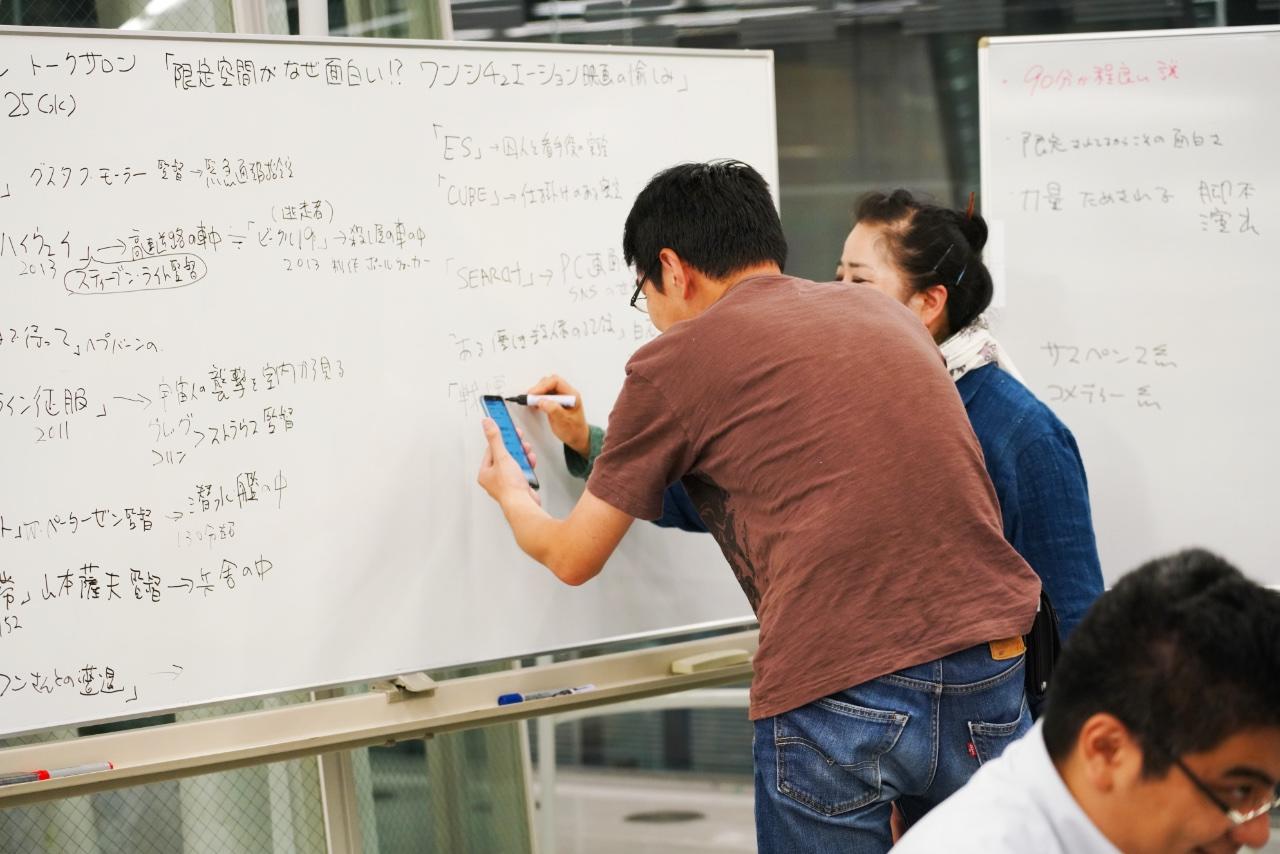 トークサロン 「限定空間がなぜ面白い!? ワンシチュエーション映画の愉しみ」
25(水)
」グスタフ・モーラー監督→緊急通報指令室
ハイウェイ」→高速道路の車中≒「ビークル19」→殺し屋の車の中
(逃走者)
2013
2013 制作 ポール・ウォーカー
スティーブン・ライト監督
で待って」ヘプバーンの
イン征服」→宇宙人の襲撃を室内から見る
2011
グレッグ
コリン
>ストラウス監督
ト」W.ペーターゼン監督→潜水艦の中
」山本薩夫監督→兵舎の中
52
フンさんとの
」→
「ES」→囚人と看守役の実験
「CUBE」→仕掛けのある
「SEARCH」→PC画面
SNSの
「ある優しき殺人者の記録」
・90分が程良い説
・限定されてるからこその面白さ
・力量 ためされる 脚本
演出
サスペンス系
コメディー系